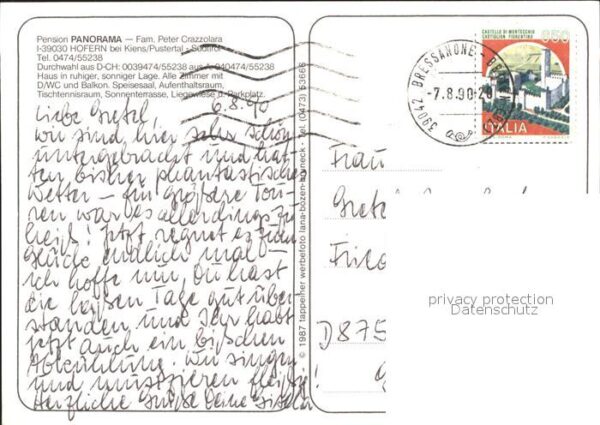 Pension PANORAMA – Fam. Peter Crazzolara
I-39030 HOFERN bei Kiens/Pustertal - Südtirol
Tel. 0474/55238
Durchwahl aus D-CH: 0039474/55238 aus A: 040474/55238
Haus in ruhiger, sonniger Lage. Alle Zimmer mit
D/WC und Balkon. Speisesaal, Aufenthaltsraum,
Tischtennisraum, Sonnenterrasse, Liegewiese u. Parkplatz.
6.8.90
Liebe Gretel,
wir sind hier sehr schön
untergebracht und hat-
ten bisher phantastisches
Wetter – für größere Tou-
ren war es allerdings zu
heiß! Jetzt regnet es zum
Glück endlich mal –
ich hoffe nun, Du hast
die heißen Tage gut über-
standen, und Ihr habt
jetzt auch ein bißchen
Abkühlung. Wir singen
und musizieren fleißig!
Herzliche Grüße Deine Giselа
© 1987 tappeiner werbefoto lana-bozen-bruneck - tel. (0473) 53666
CASTELLO DI MONTECCHIO
CASTIGLION FIORENTINO
650
ITALIA
39042 BRESSANONE
-7.8.90-20
Frau
Gretel
Fried
D 875
privacy protection
Datenschutz